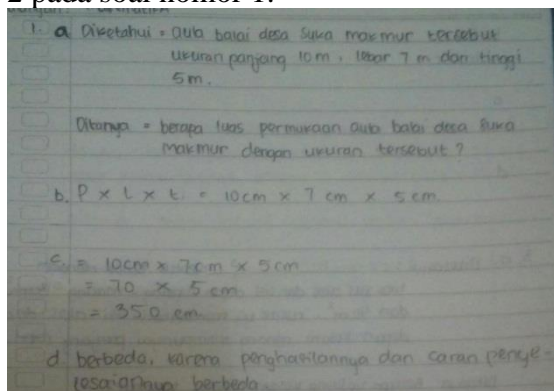 2 pada soal nomor 1.
1. a Diketahui = aula balai desa Suka makmur tersebut
ukuran panjang 10 m, lebar 7 m dan tinggi
5 m.
Ditanya = berapa luas permukaan aula balai desa suka
makmur dengan ukuran tersebut?
b. P x L x t = 10cm x 7 cm x 5 cm
c. = 10cm x 7cm x 5cm
= 70 x 5 cm
= 350 cm
d. berbeda, karena penghasilannya dan caran penye-
lesaiannya berbeda